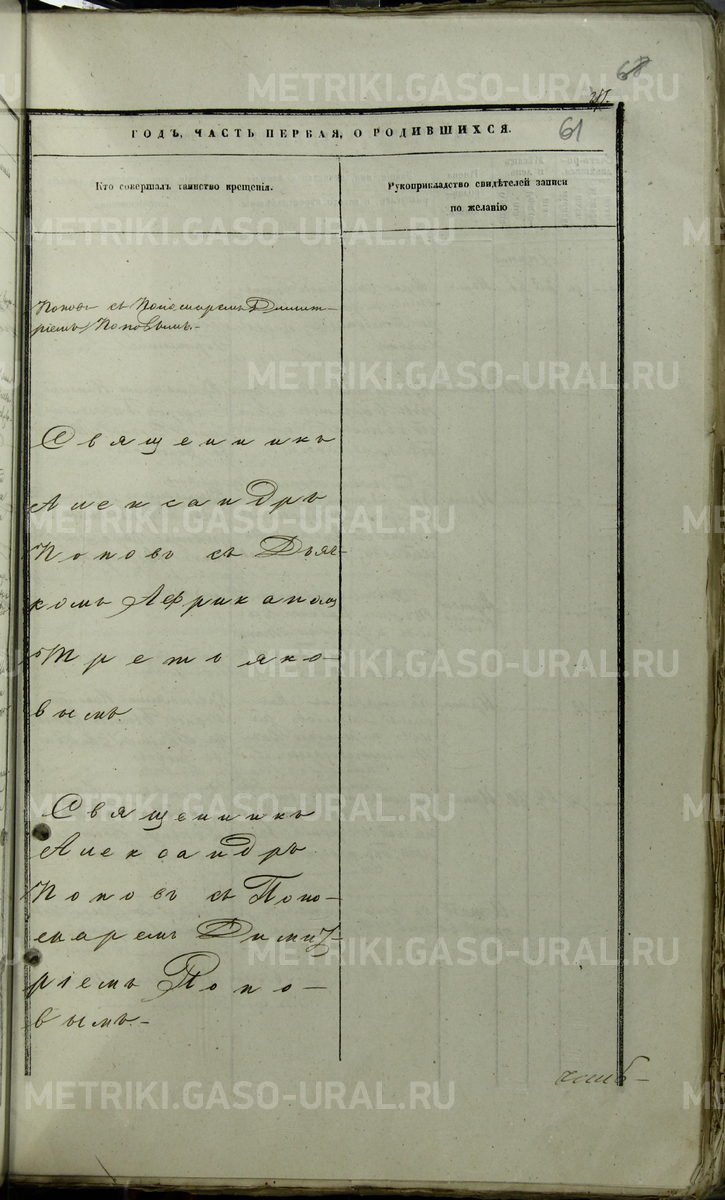 68
61
ГОДЪ, ЧАСТЬ ПЕРВАЯ, О РОДИВШИХСЯ.
Кто совершалъ таинство крещенія.
Рукоприкладство свидѣтелей записи
по желанію
Поповъ съ Пономаремъ Димит-
ріемъ Поповымъ.-
Священникъ
Александръ
Поповъ съ Дьяч-
комъ Африканомъ
Третьяко-
вымъ.
Священникъ
Александръ
Поповъ съ Поно-
маремъ Димит-
ріемъ Попо-
вымъ.-
METRIKI.GASO-URAL.RU